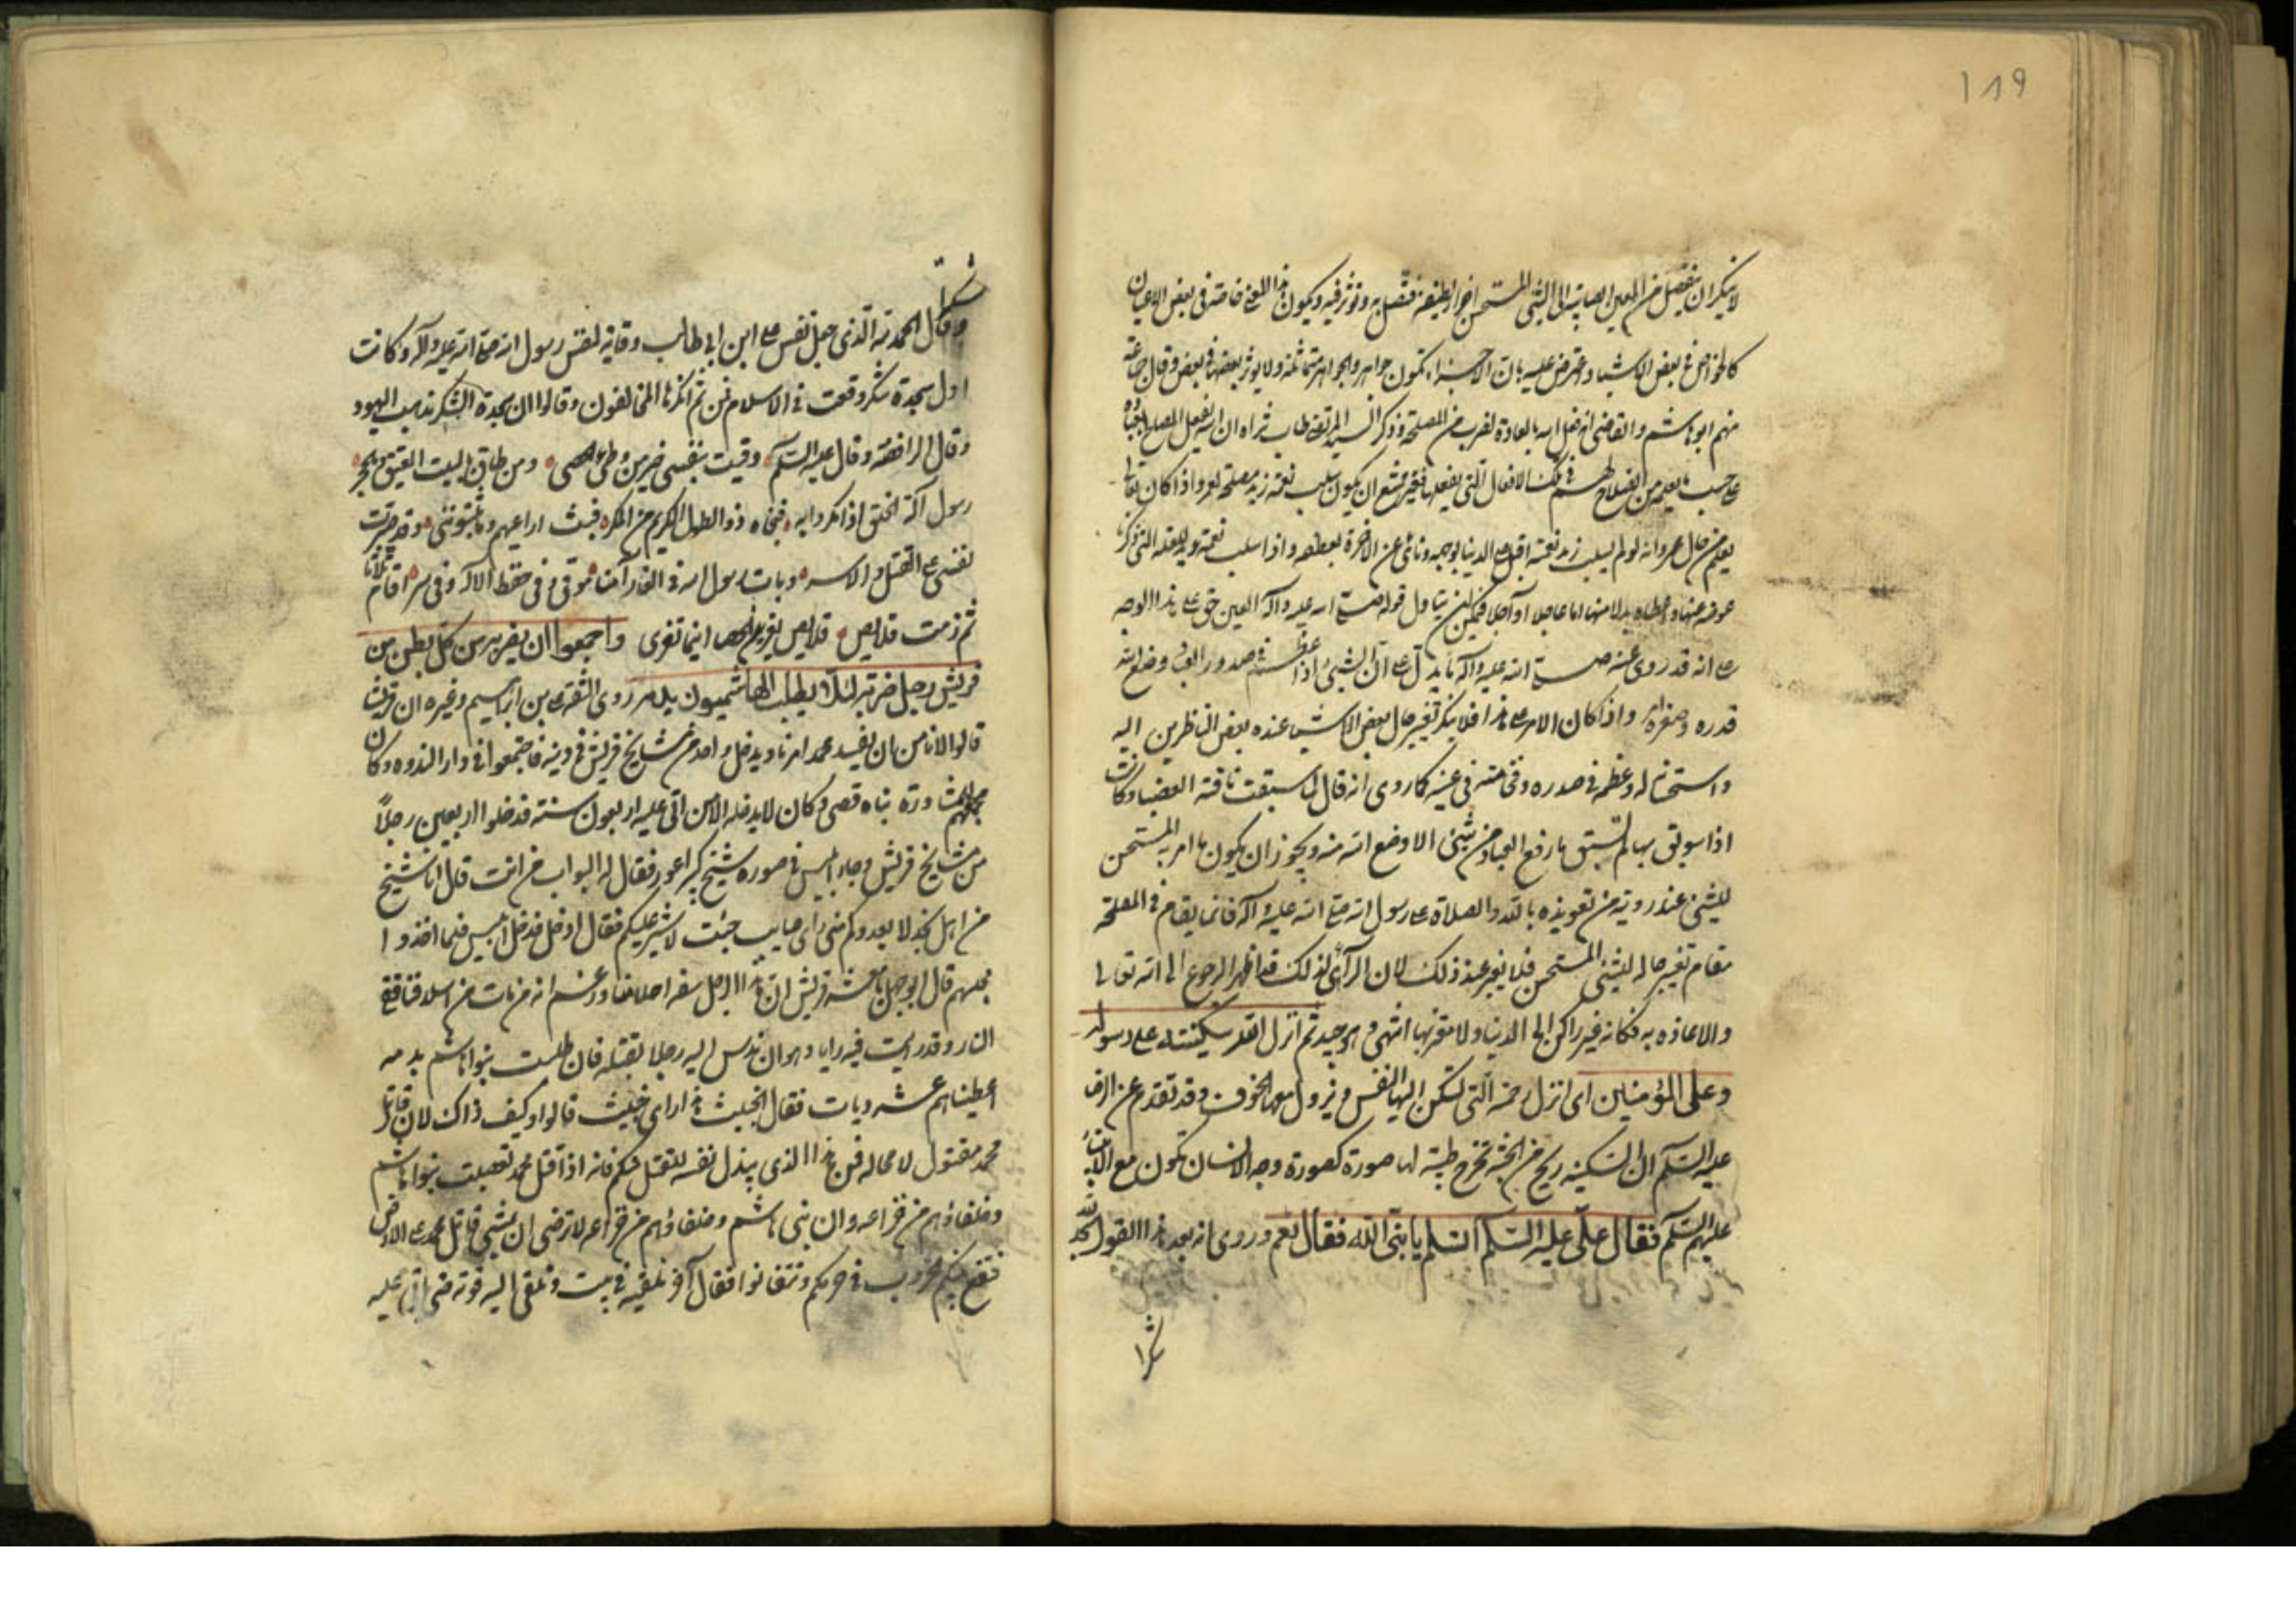 ١٨٩
لا ينكر ان ينفصل من العين الصائبة الى الشئ المستحسن اجزاء لطيفة فتتصل به وتؤثر فيه ويكون هذا المعنى خاصة في بعض الاعيان
كالخواص في بعض الاشياء واعترض عليه بان الاجزاء تكون جواهر والجواهر متماثلة ولا يؤثر بعضها في بعض وقال جماعة
منهم ابو هاشم والقاضي انه فعل الله بالعادة لضرب من المصلحة وذكر السيد المرتضى طاب ثراه ان الله يفعل المصلحة بعباده
على حسب ما يعلمه من الصلاح لهم في تلك الافعال التي يفعلها فغير ممتنع ان يكون سلب نعمة زيد مصلحة لعمرو واذا كان تعالى
يعلم من حال عمرو انه لو لم يسلب زيد نعمته اقبل على الدنيا بوجهه ونأى عن الاخرة بعطفه واذا سلب نعمة زيد للعلة التي ذكرنا
عوضه عنها واعطاه بدلا منها اما عاجلا او آجلا فيمكن ان يتاول قوله صلى الله عليه وآله العين حق على هذا الوجه
على انه قد روى عنه صلى الله عليه وآله ما يدل على ان الشئ اذا عظم في صدور العباد وضع الله
قدره وصغر امره واذا كان الامر على هذا فلا ينكر تغيير حال بعض الاشياء عند بعض الناظرين اليه
واستحسانه له وعظمه في صدره وفخامته في عينه كما روى انه قال لما سبقت ناقته العضباء وكانت
اذا سوبق بها لم تسبق ما رفع العباد من شئ الا وضع الله منه ويجوز ان يكون ما امر به المستحسن
للشئ عند رويته من تعويذه بالله والصلاة على رسول الله صلى الله عليه وآله قائما يقام في المصلحة
مقام تغيير حاله للشئ المستحسن فلا يغير عند ذلك لان الرآئي لذلك قد اظهر الرجوع الى الله تعالى
والاعاذه به فكانه غير راكن الى الدنيا ولا مغتر بها انتهى وهو جيد ثم انزل الله سكينته على رسوله
وعلى المؤمنين اى انزل رحمته التي تسكن اليها النفس ويزول معها الخوف وقد تقدم عن الرضا
عليه السلام ان السكينة ريح من الجنة تخرج طيبة لها صورة كصورة وجه الانسان تكون مع الانبياء
عليهم السلام فقال علي عليه السلام اتسلم يا نبي الله فقال نعم وروى انه بعد هذا القول سجد لله
شكرا
شكرا
وقال الحمد لله الذي جعل نفس علي ابن ابي طالب وقاية لنفس رسول الله صلى الله عليه وآله وكانت
اول سجدة شكر وقعت في الاسلام فمن ثم انكرها المخالفون وقالوا ان سجدة الشكر مذهب اليهود
وقال الرافضة وقال عليه السلام وقيت بنفسي خير من وطئ الحصى ومن طاف بالبيت العتيق وبالحجر
رسول اله الخلق اذ مكروا به فنجاه ذو الطول الكريم من المكر فبت اراعيهم وما يثبتونني وقد صبرت
نفسي على القتل والاسر وبات رسول الله في الغار آمنا موقى وفي حفظ الاله وفي ستر اقام ثلاثا
ثم زمت قلايص قلايص يفرين الحصا اينما تفرى واجمعوا ان يضربه من كل بطن من
قريش رجل ضربة لئلا يطلب الهاشميون بدمه روى الثقة علي بن ابراهيم وغيره ان قريشا
قالوا لا نامن ان يفسد محمد امرنا ويدخل واحد من مشايخ قريش في دينه فاجتمعوا في دار الندوه وكان
مجلسهم للمشاورة بناه قصى وكان لا يدخله الا من اتى عليه اربعون سنة فدخلوا اربعين رجلًا
من مشايخ قريش وجاء ابليس في صورة شيخ كبير اعور فقال له البواب من انت قال انا شيخ
من اهل نجد لا يعدوكم مني راى صايب جئت لاشير عليكم فقال ادخل فدخل ابليس فلما اخذوا
مجلسهم قال ابو جهل يا معشر قريش ان هذا الرجل سفه احلامنا وزعم انه من مات من اسلافنا ففي
النار وقد رايت فيه رايا وهو ان ندس اليه رجلا يقتله فان طلبت بنو هاشم بدمه
اعطيناهم عشر ديات فقال الخبيث هذا راى خبيث قالوا وكيف ذاك لان قاتل
محمد مقتول لا محاله فمن هذا الذي يبذل نفسه للقتل منكم فانه اذا قتل محمد تعصبت بنو هاشم
وحلفاؤهم من خزاعه وان بني هاشم وحلفاؤهم من خزاعه لا ترضى ان يمشي قاتل محمد على الارض
فتقع بينكم حروب في حرمكم وتتفانوا فقال آخر نلقيه في بيت ونلقى اليه قوته حتى ياتي عليه